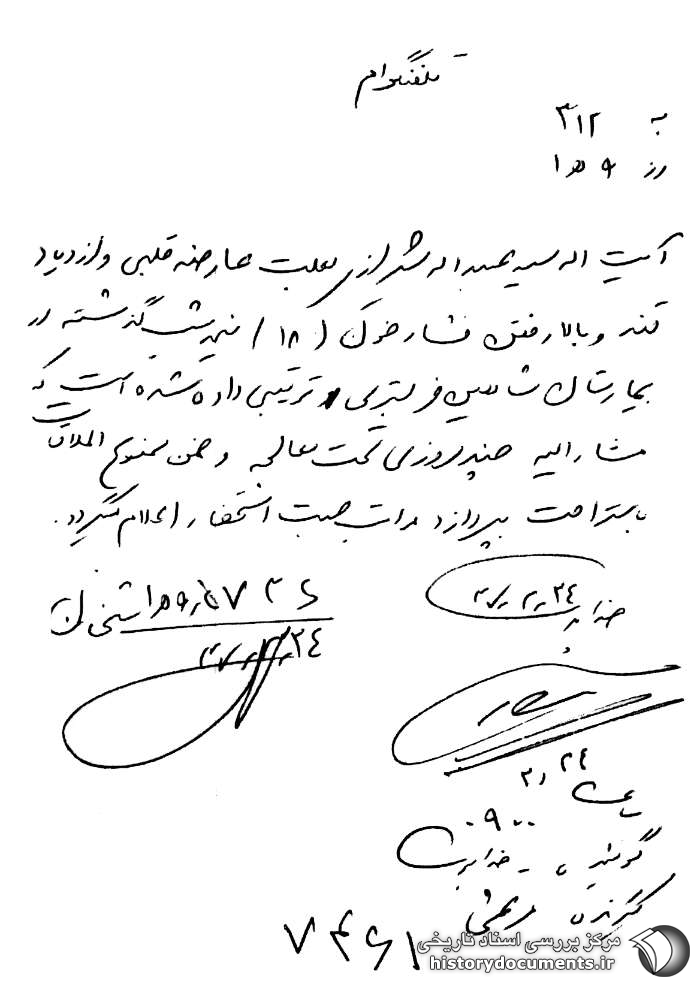 تلفنگرام
به ۳۱۲
از ۹ ه‍ ۱
آیت اله سید عبداله شیرازی بعلت عارضه قلبی و ازدیاد
قند و بالا رفتن فشار خون (۱۸) نیمه شب گذشته در
بیمارستان شاهین فر بستری ترتیبی داده شده است که
مشارالیه چند روزی تحت معالجه و ضمن ممنوع الملاقات
باستراحت بپردازد مراتب جهت استحضار اعلام میگردد.
۳۷،۲،۲۴
۳۷،۲،۲۴
۲۴ ,۲
ساعت ۰۹۰۰
گوینده
گیرنده
۷۴۶۱
مرکز بررسی اسناد تاریخی
historydocuments.ir